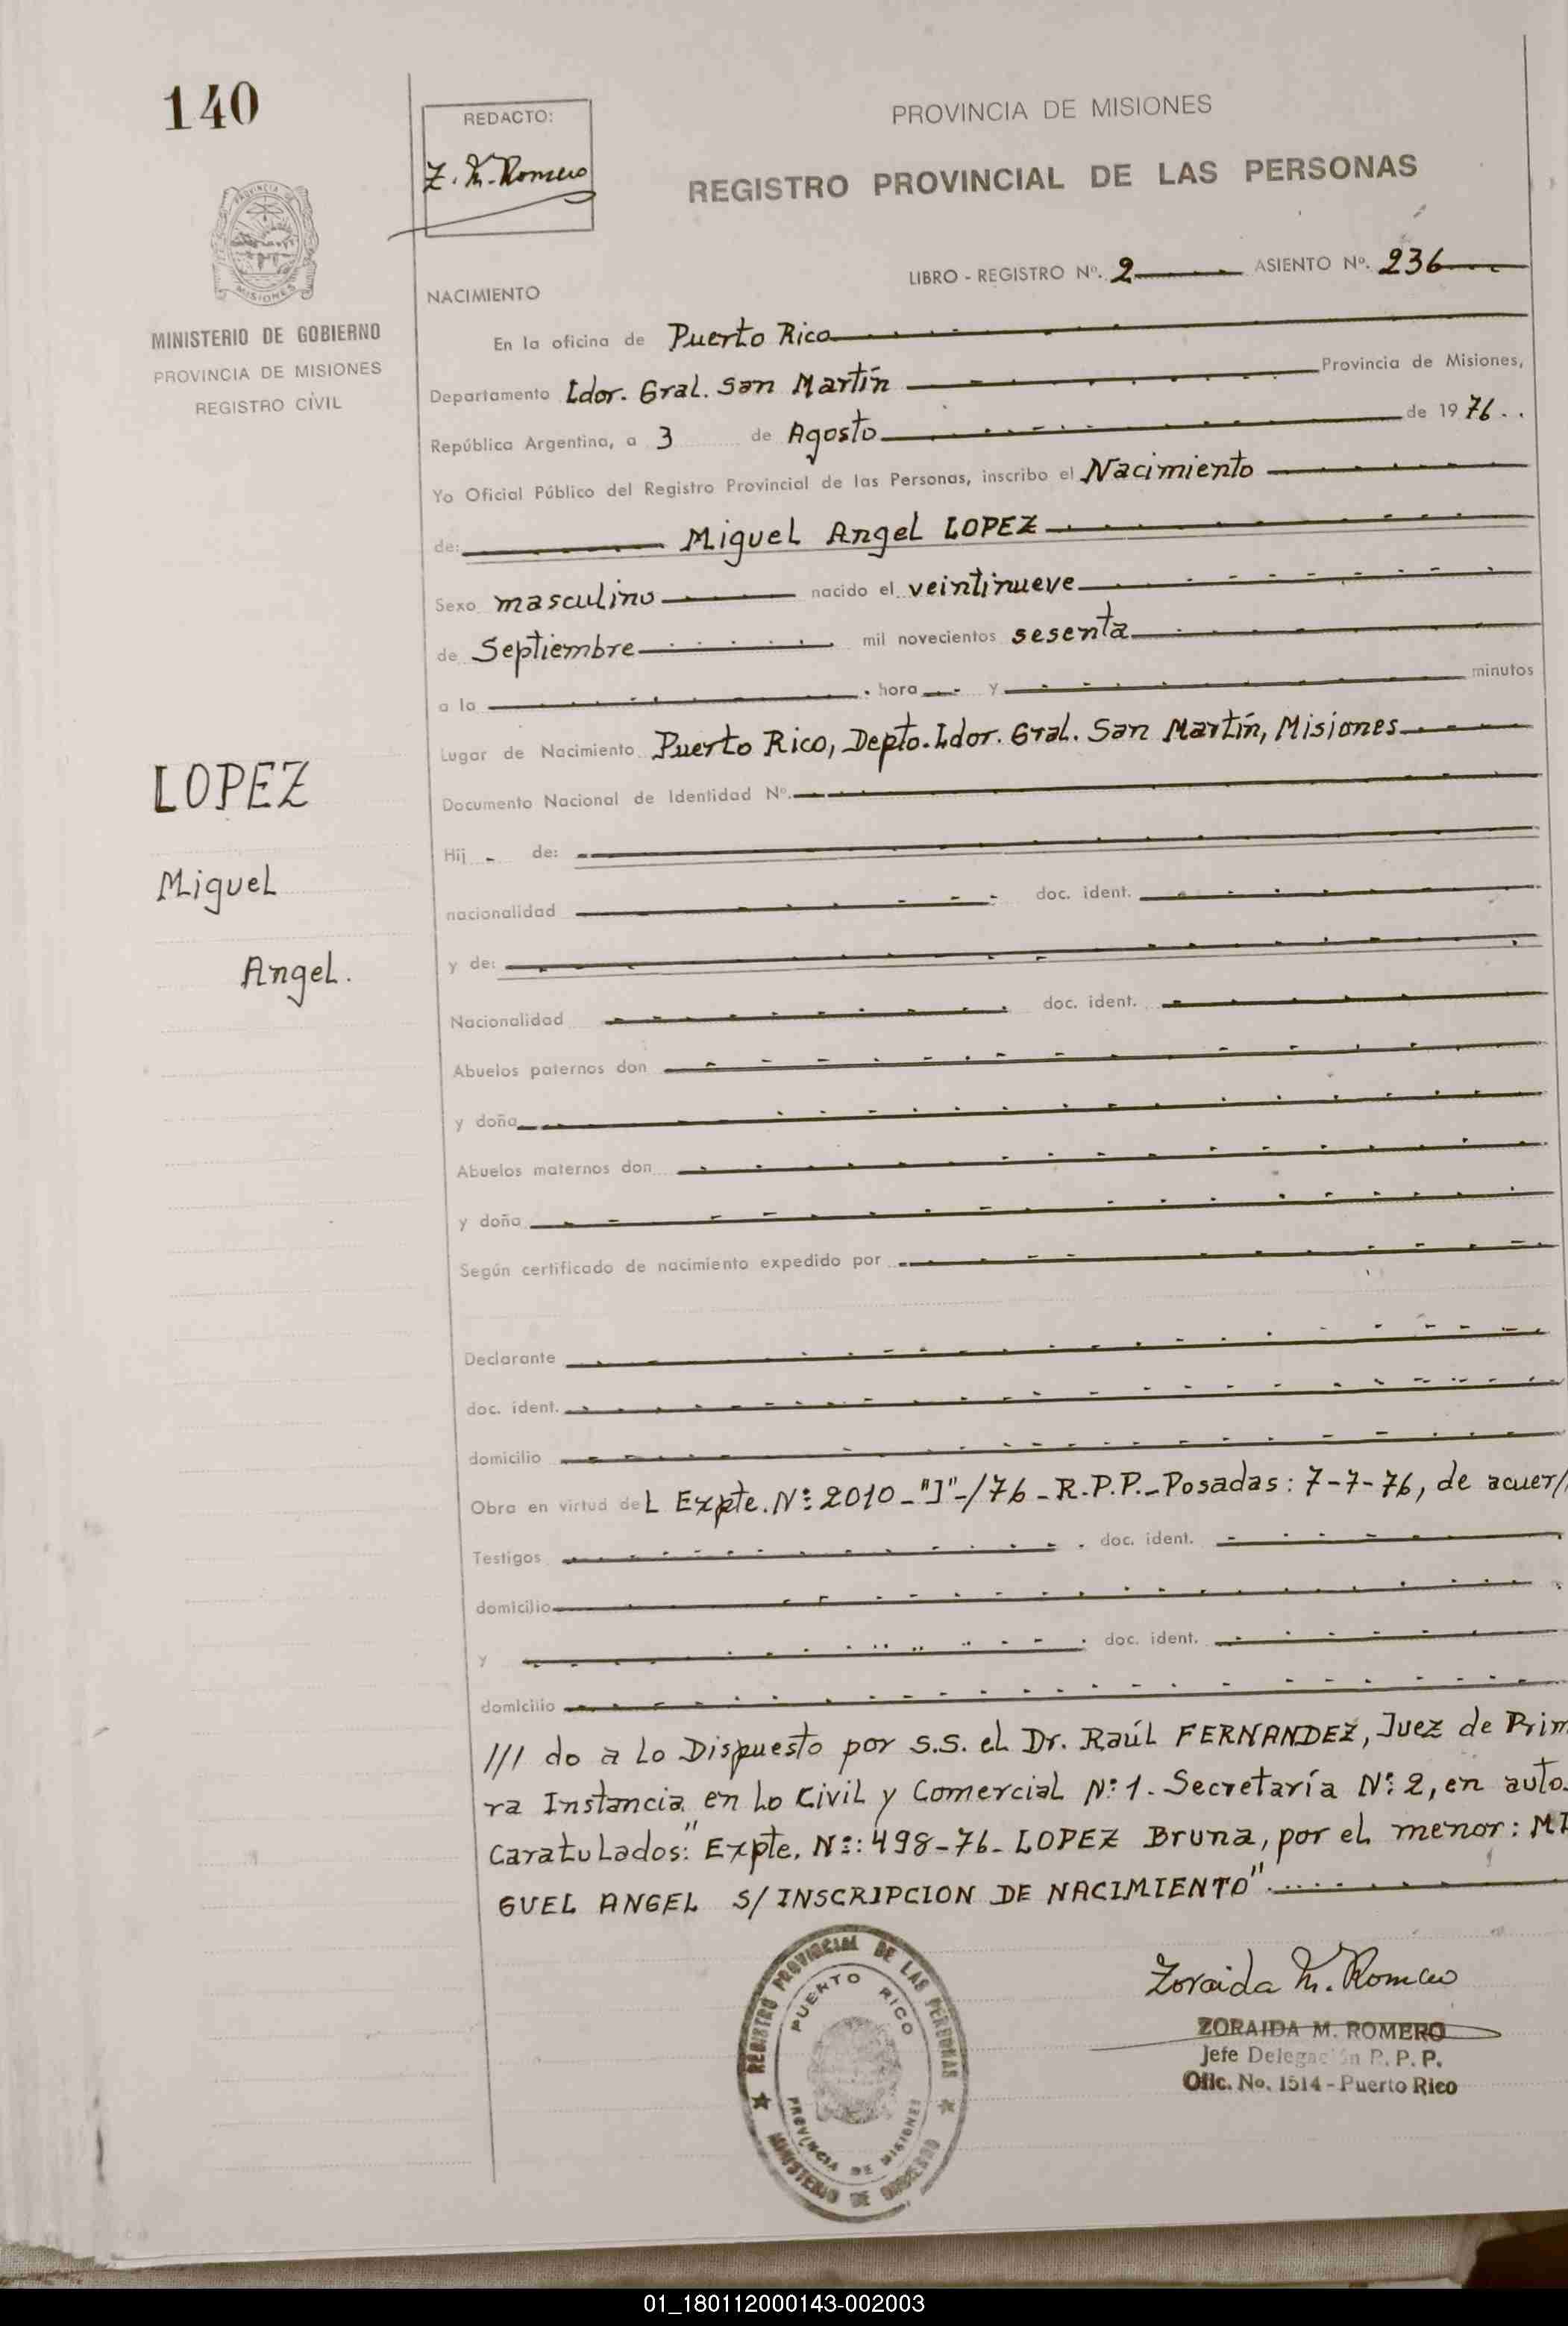 140
REDACTO:
Z. M. Romero
PROVINCIA DE MISIONES
REGISTRO PROVINCIAL DE LAS PERSONAS
PROVINCIA
MISIONES
MINISTERIO DE GOBIERNO
PROVINCIA DE MISIONES
REGISTRO CIVIL
LIBRO - REGISTRO Nº. 2 ASIENTO Nº. 236
NACIMIENTO
En la oficina de Puerto Rico
Departamento Ldor. Gral. San Martín Provincia de Misiones,
República Argentina, a 3 de Agosto de 1976
Yo Oficial Público del Registro Provincial de las Personas, inscribo el Nacimiento
de: Miguel Angel LOPEZ
Sexo masculino nacido el veintinueve
de Septiembre mil novecientos sesenta
a la hora y minutos
Lugar de Nacimiento Puerto Rico, Depto. Ldor. Gral. San Martín, Misiones
LOPEZ
Miguel
Angel.
Documento Nacional de Identidad Nº.
Hij de:
nacionalidad doc. ident.
y de:
Nacionalidad doc. ident.
Abuelos paternos don
y doña
Abuelos maternos don
y doña
Según certificado de nacimiento expedido por
Declarante
doc. ident.
domicilio
Obra en virtud deL Expte. Nº: 2010-"J"-/76-R.P.P.-Posadas: 7-7-76, de acuer/
Testigos doc. ident.
domicilio
y doc. ident.
domicilio
/// do a lo Dispuesto por S.S. el Dr. Raúl FERNANDEZ, Juez de Prim
ra Instancia en lo Civil y Comercial Nº: 1. Secretaría Nº: 2, en auto
Caratulados: "Expte. Nº: 498-76- LOPEZ Bruna, por el menor: MI
GUEL ANGEL S/ INSCRIPCION DE NACIMIENTO"
REGISTRO PROVINCIAL DE LAS PERSONAS
PUERTO RICO
PROVINCIA DE MISIONES
MINISTERIO DE GOBIERNO
Zoraida M. Romero
ZORAIDA M. ROMERO
Jefe Delegación R. P. P.
Ofic. No. 1514 - Puerto Rico
01_180112000143-002003